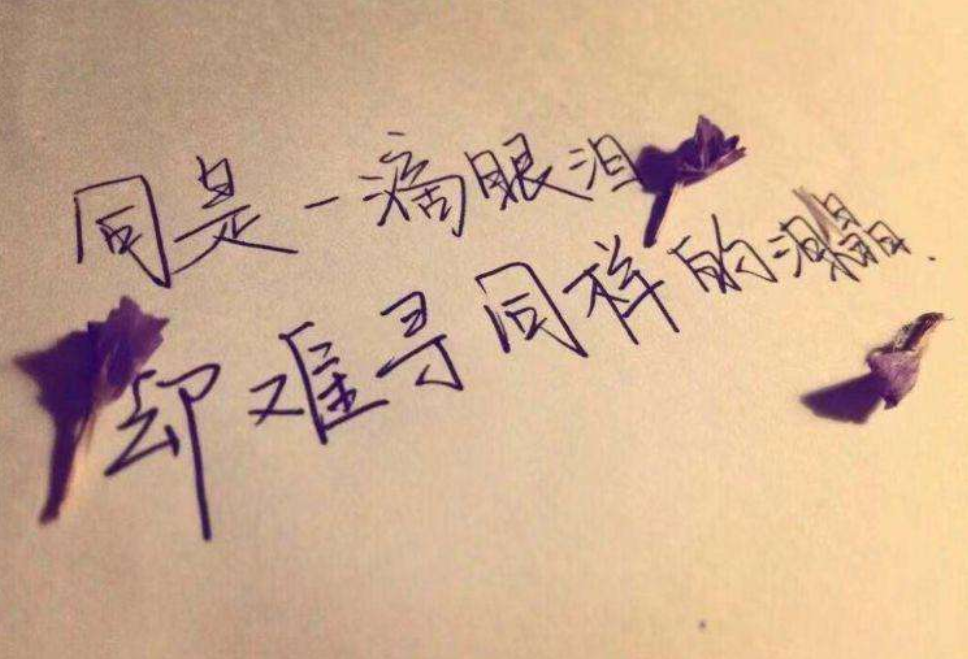 同是一滴眼泪
却难寻同样的泪晶.